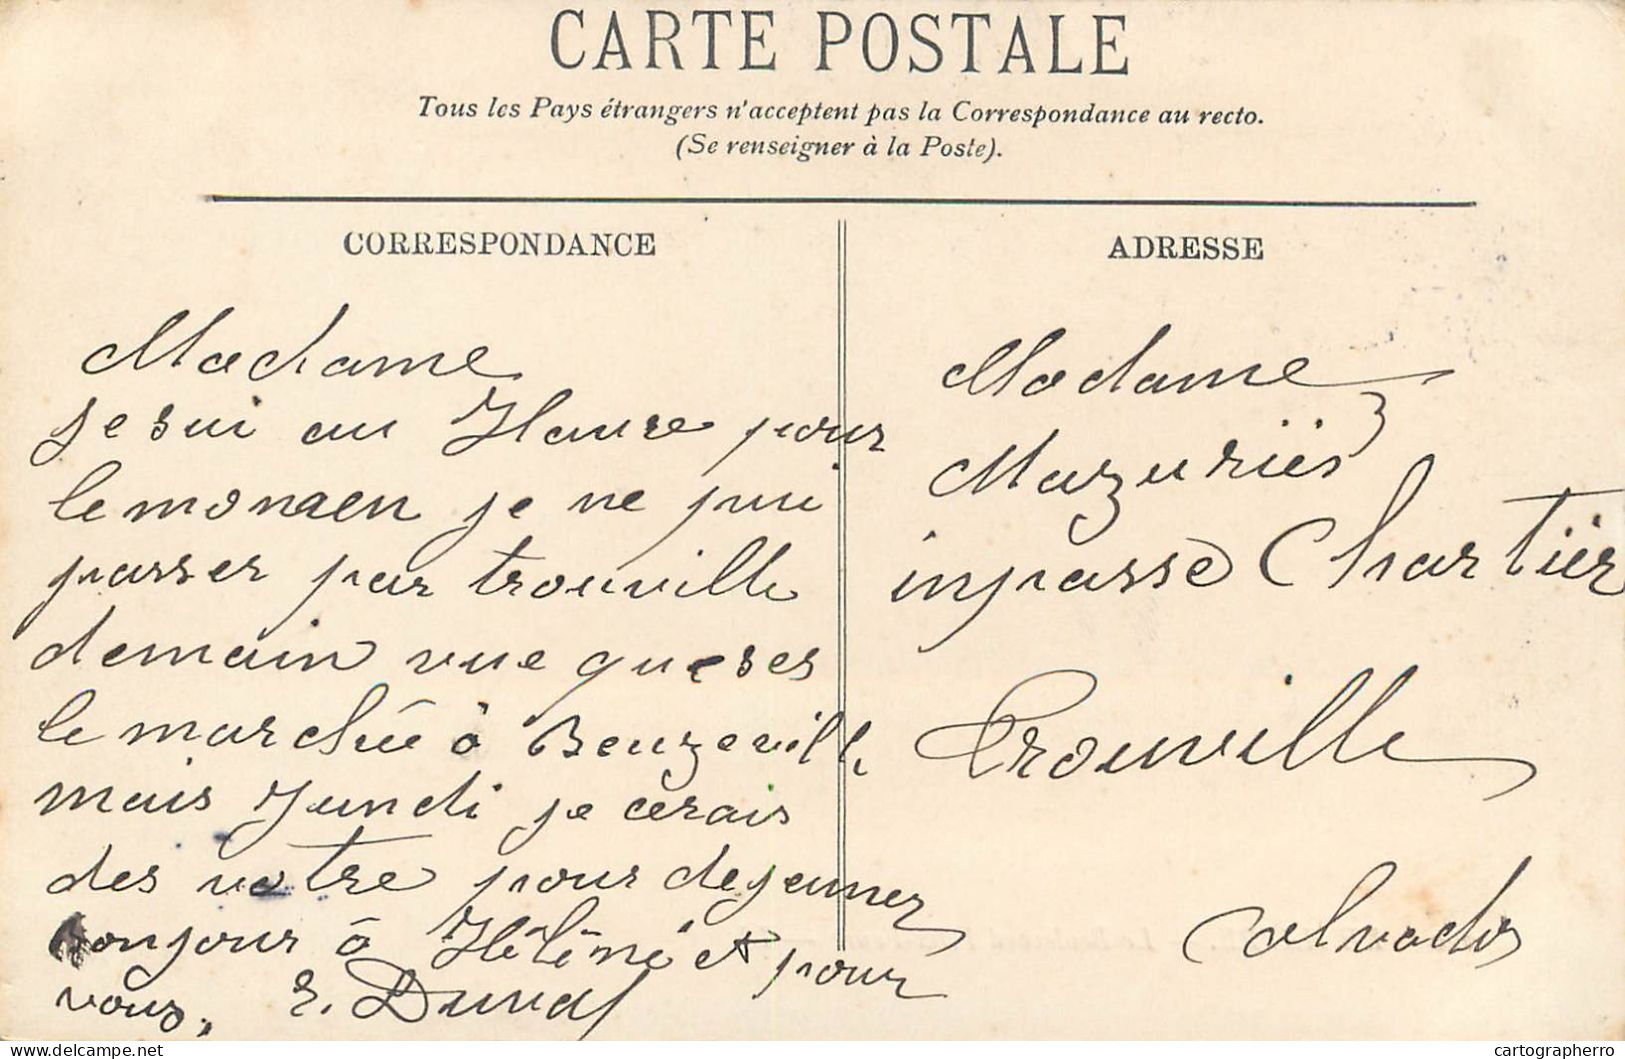 CARTE POSTALE
Tous les Pays étrangers n'acceptent pas la Correspondance au recto.
(Se renseigner à la Poste).
CORRESPONDANCE
Madame
je sui au Havre pour
le monaen je ne pui
passer par trouville
demain vue que ses
le marchée à Beuzeville
mais Jundi je cerais
des votre pour dejeunez
Bonjour à Hélène et pour
vous. E. Duval
ADRESSE
Madame
Mazuriés
inpasse Chartier
Trouville
Calvados
delcampe.net
cartographerro